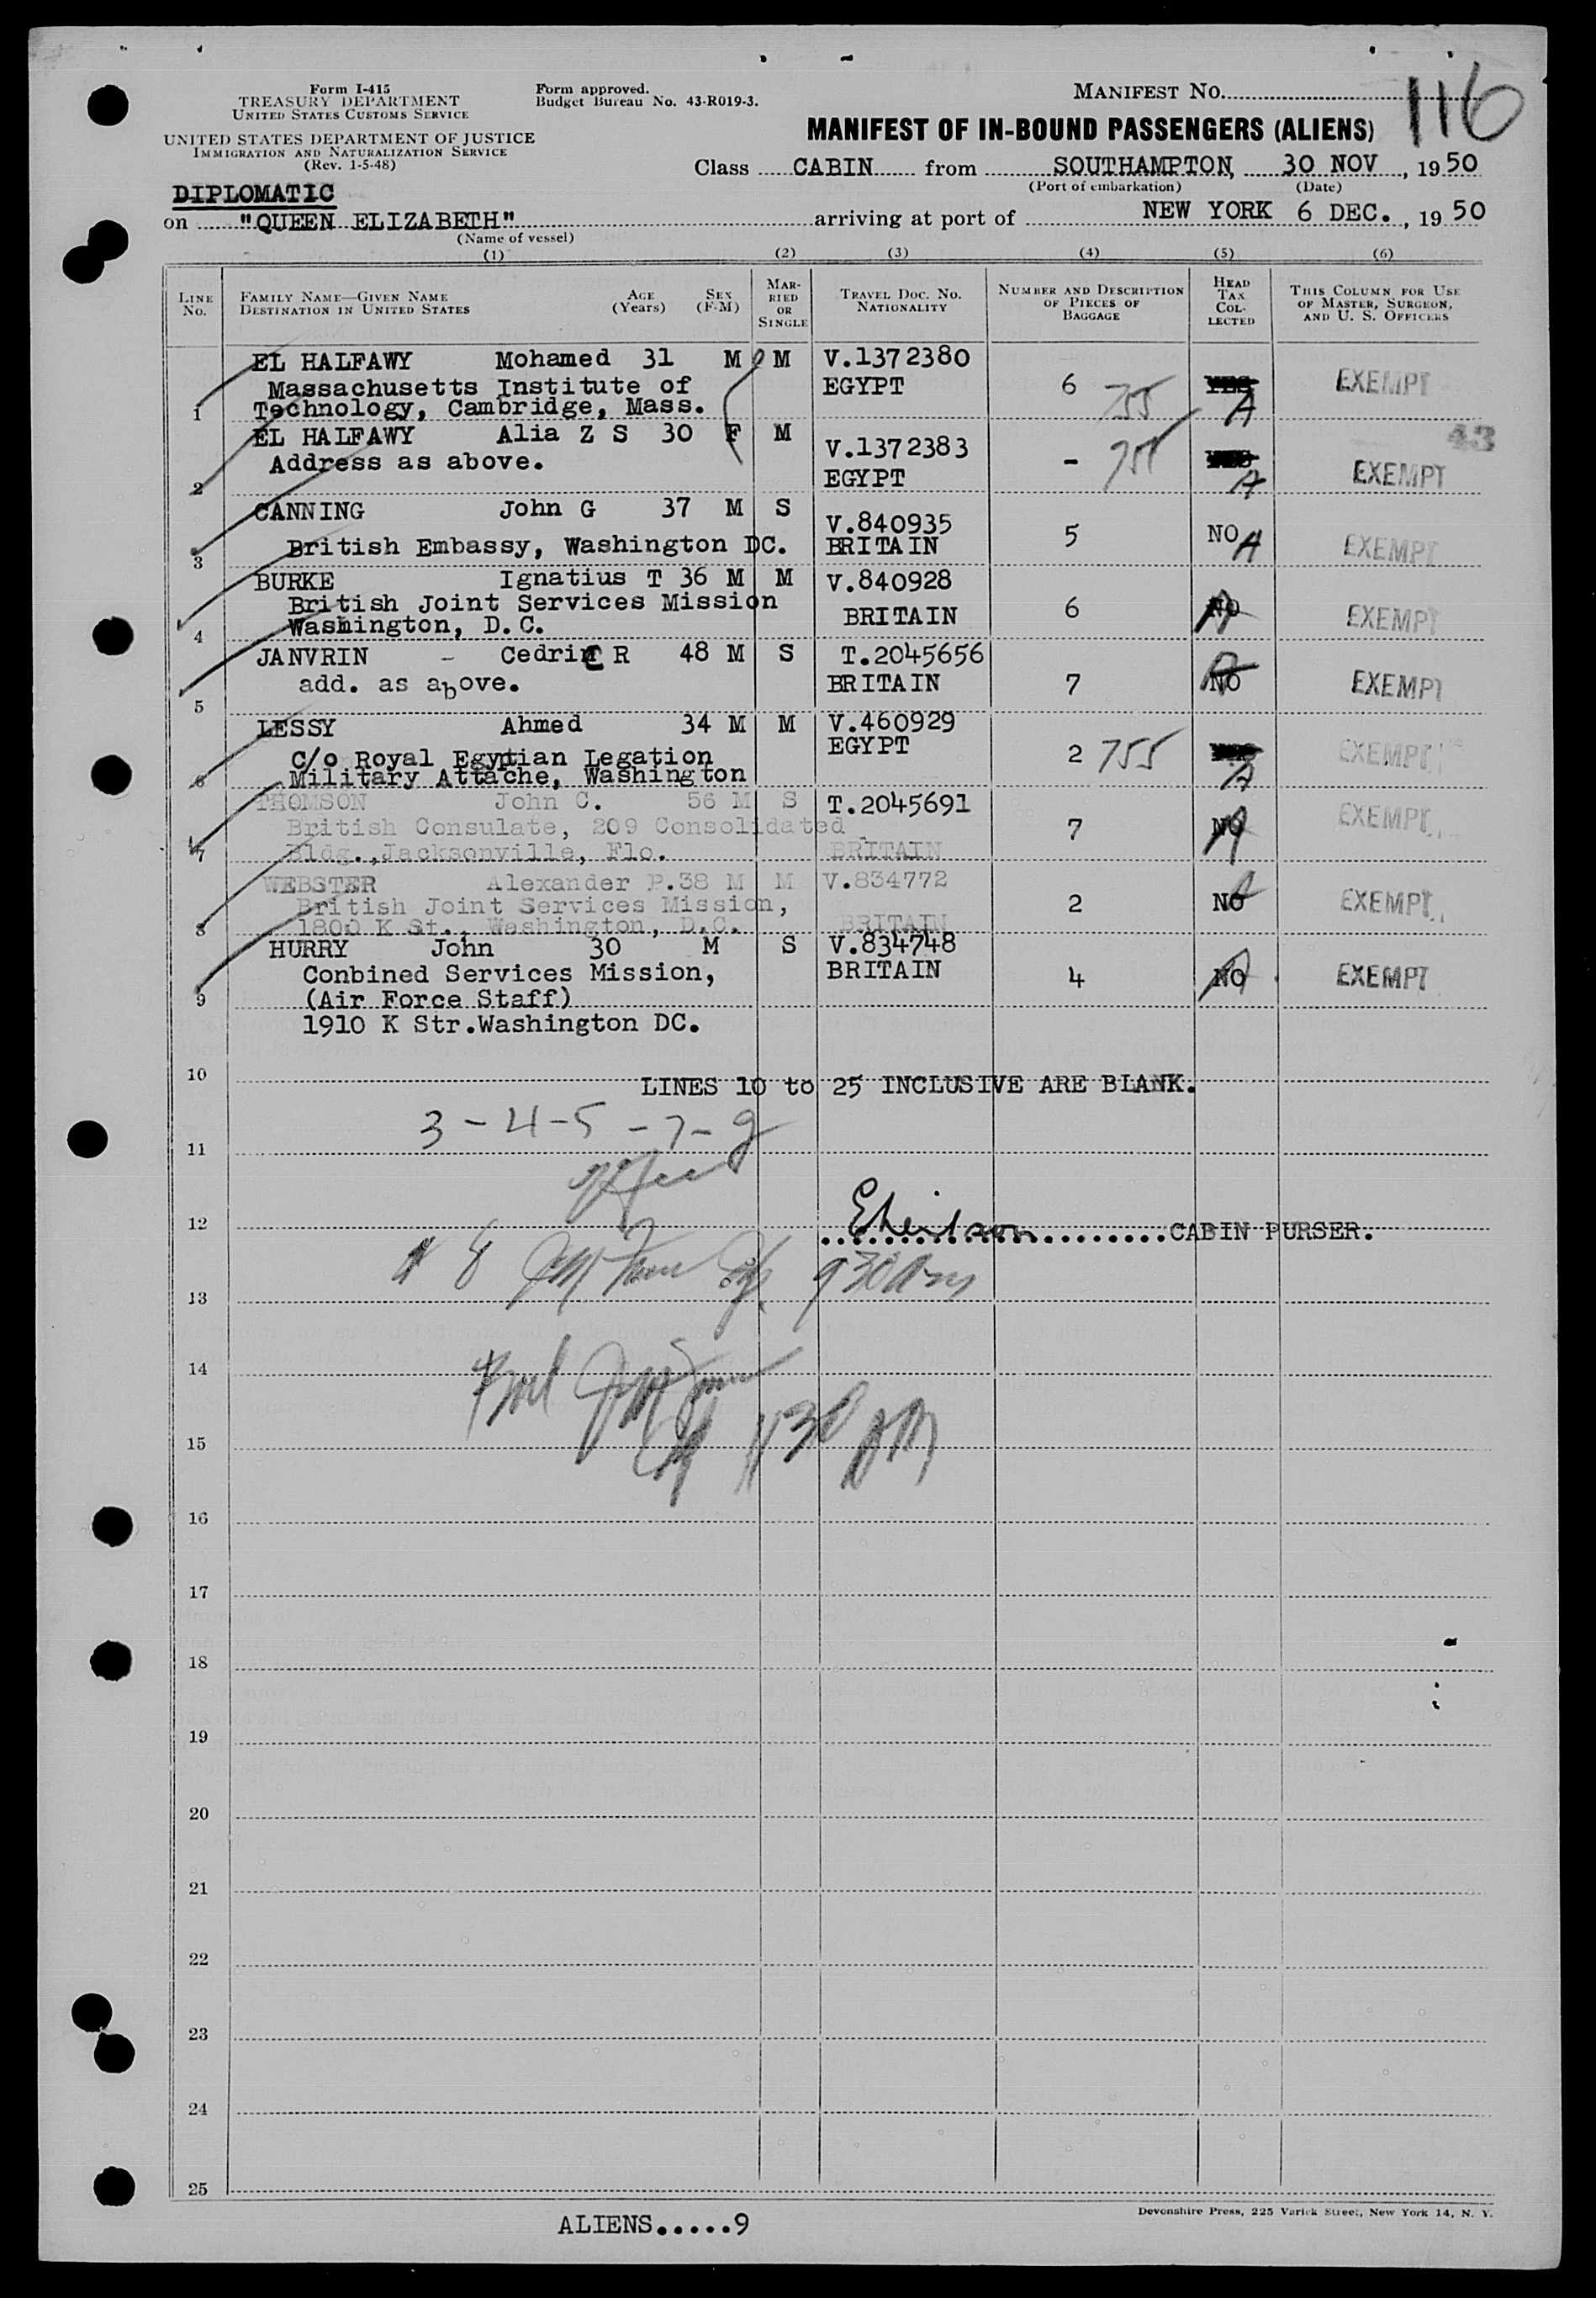 Form I-415
TREASURY DEPARTMENT
UNITED STATES CUSTOMS SERVICE
UNITED STATES DEPARTMENT OF JUSTICE
IMMIGRATION AND NATURALIZATION SERVICE
(Rev. 1-5-48)
Form approved.
Budget Bureau No. 43-R019-3.
MANIFEST NO.
116
MANIFEST OF IN-BOUND PASSENGERS (ALIENS)
Class CABIN from SOUTHAMPTON, 30 NOV, 1950
(Port of embarkation) (Date)
DIPLOMATIC
on "QUEEN ELIZABETH" arriving at port of NEW YORK 6 DEC., 1950
(Name of vessel)
(1) (2) (3) (4) (5) (6)
LINE NO.
FAMILY NAME—GIVEN NAME
DESTINATION IN UNITED STATES
AGE (Years)
SEX (F-M)
MARRIED OR SINGLE
TRAVEL DOC. NO.
NATIONALITY
NUMBER AND DESCRIPTION OF PIECES OF BAGGAGE
HEAD TAX COLLECTED
THIS COLUMN FOR USE OF MASTER, SURGEON, AND U. S. OFFICERS
EL HALFAWY Mohamed 31 M M V.1372380
Massachusetts Institute of EGYPT 6 755 A EXEMPT
1 Technology, Cambridge, Mass.
EL HALFAWY Alia Z S 30 F M V.1372383 43
Address as above. - 755 A EXEMPT
2 EGYPT
CANNING John G 37 M S V.840935
British Embassy, Washington DC. BRITAIN 5 NO A EXEMPT
3
BURKE Ignatius T 36 M M V.840928
British Joint Services Mission BRITAIN 6 NO A EXEMPT
4 Washington, D.C.
JANVRIN - Cedric R 48 M S T.2045656
add. as above. BRITAIN 7 NO A EXEMPT
5
LESSY Ahmed 34 M M V.460929
C/o Royal Egyptian Legation EGYPT 2 755 A EXEMPT
6 Military Attache, Washington
THOMSON John C. 56 M S T.2045691
British Consulate, 209 Consolidated 7 NO A EXEMPT
7 Bldg.,Jacksonville, Flo. BRITAIN
WEBSTER Alexander P.38 M M V.834772
British Joint Services Mission, 2 NO A EXEMPT
8 1800 K St., Washington, D.C. BRITAIN
HURRY John 30 M S V.834748
Conbined Services Mission, BRITAIN 4 NO A EXEMPT
9 (Air Force Staff)
1910 K Str.Washington DC.
10 LINES 10 to 25 INCLUSIVE ARE BLANK.
3-4-5-7-9
11
12 CABIN PURSER.
8 930 Am
13
14
1130 AM
15
16
17
18
19
20
21
22
23
24
25
ALIENS.....9
Devonshire Press, 225 Varick Street, New York 14, N. Y.